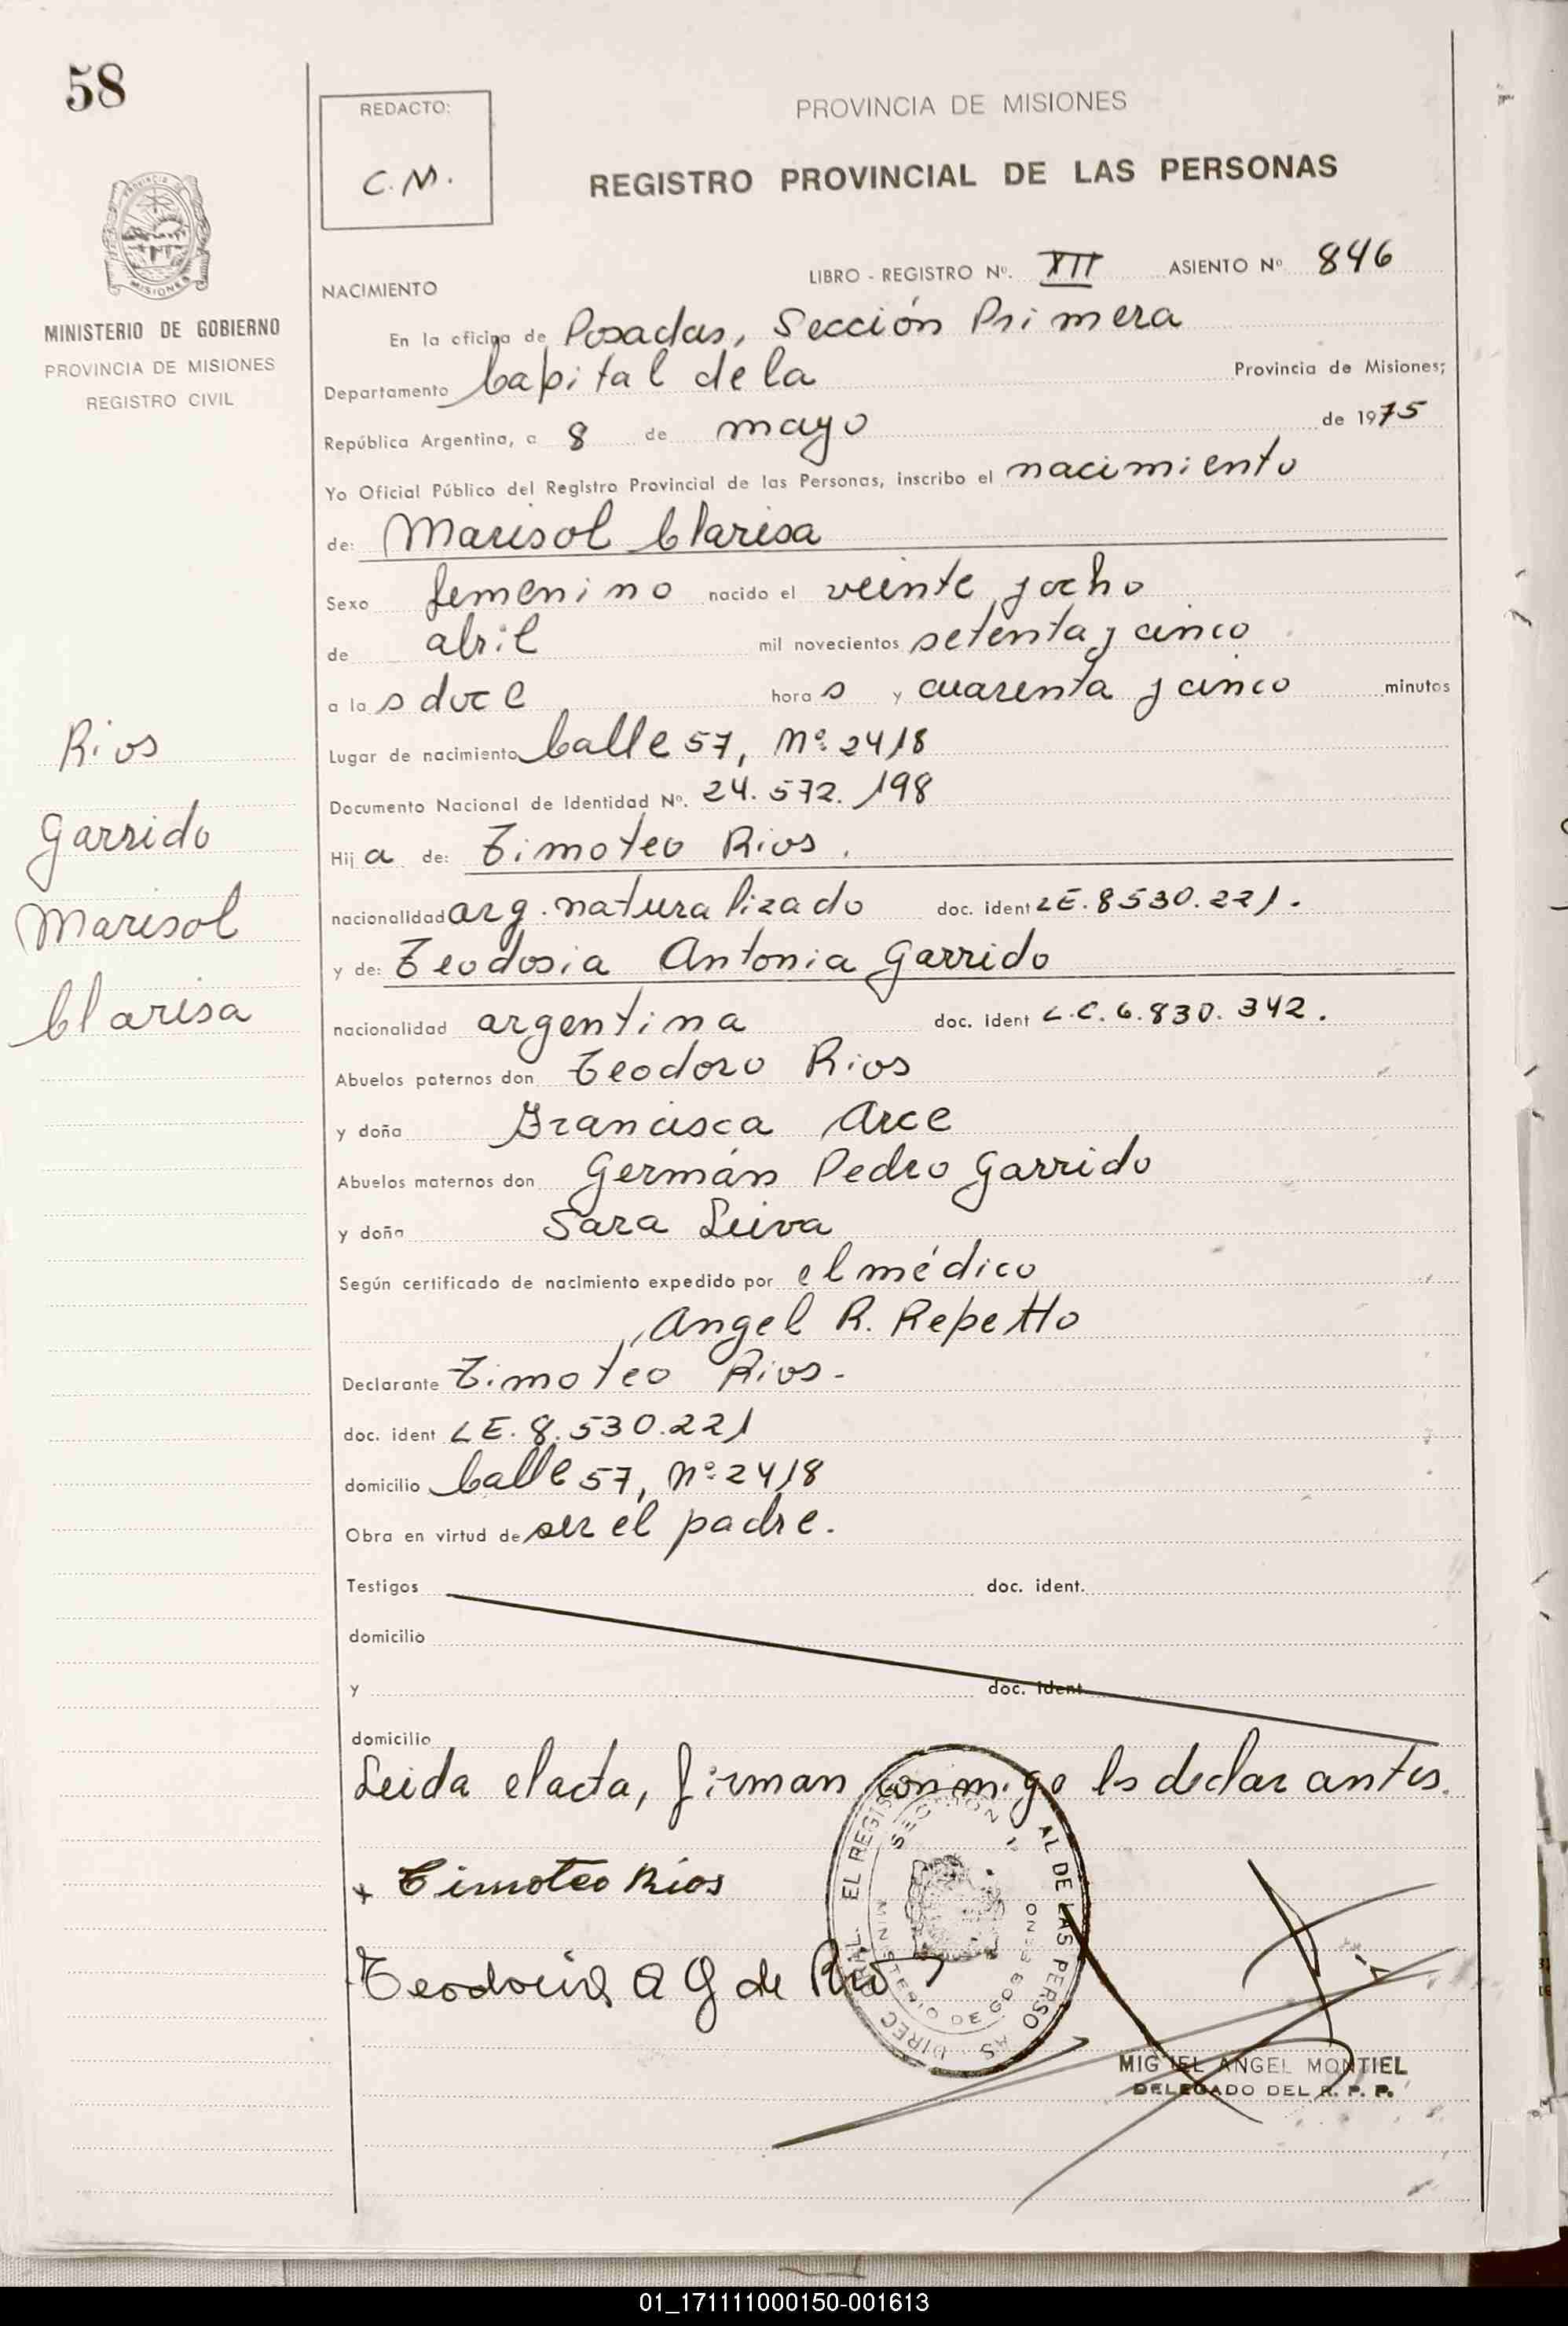 58
PROVINCIA DE
MISIONES
MINISTERIO DE GOBIERNO
PROVINCIA DE MISIONES
REGISTRO CIVIL
Rios
Garrido
Marisol
Clarisa
REDACTO:
C.M.
PROVINCIA DE MISIONES
REGISTRO PROVINCIAL DE LAS PERSONAS
LIBRO - REGISTRO Nº. XII ASIENTO Nº 846
NACIMIENTO
En la oficina de Posadas, Sección Primera
Departamento Capital de la Provincia de Misiones;
República Argentina, a 8 de mayo de 1975
Yo Oficial Público del Registro Provincial de las Personas, inscribo el nacimiento
de: Marisol Clarisa
Sexo femenino nacido el veinte y ocho
de abril mil novecientos setenta y cinco
a la s doce hora s y cuarenta y cinco minutos
Lugar de nacimiento Calle 57, Nº 2418
Documento Nacional de Identidad Nº. 24.572.198
Hij a de: Timoteo Rios.
nacionalidad arg. naturalizado doc. ident LE. 8530.221.
y de: Teodosia Antonia Garrido
nacionalidad argentina doc. ident L.C. 6.830.342.
Abuelos paternos don Teodoro Rios
y doña Francisca Arce
Abuelos maternos don Germán Pedro Garrido
y doña Sara Leiva
Según certificado de nacimiento expedido por el médico
Angel R. Repetto
Declarante Timoteo Rios.-
doc. ident LE. 8.530.221
domicilio Calle 57, Nº 2418
Obra en virtud de ser el padre.
Testigos doc. ident.
domicilio
y doc. ident.
domicilio
Leida el acta, firman conmigo los declarantes.
+ Timoteo Rios
Teodosia A G de Rios
MIGUEL ANGEL MONTIEL
DELEGADO DEL R. P. P.
01_171111000150-001613